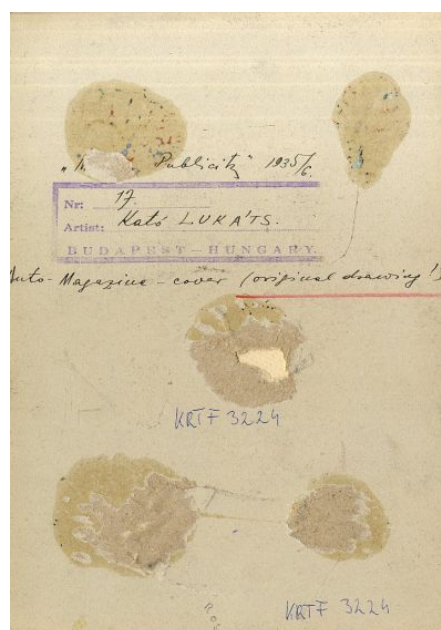 Publicity" 1935/6.
Nr: 17.
Artist: Kató LUKÁTS.
BUDAPEST — HUNGARY.
Auto-Magazine - cover (original drawing!)
KRTF 3224
KRTF 3224